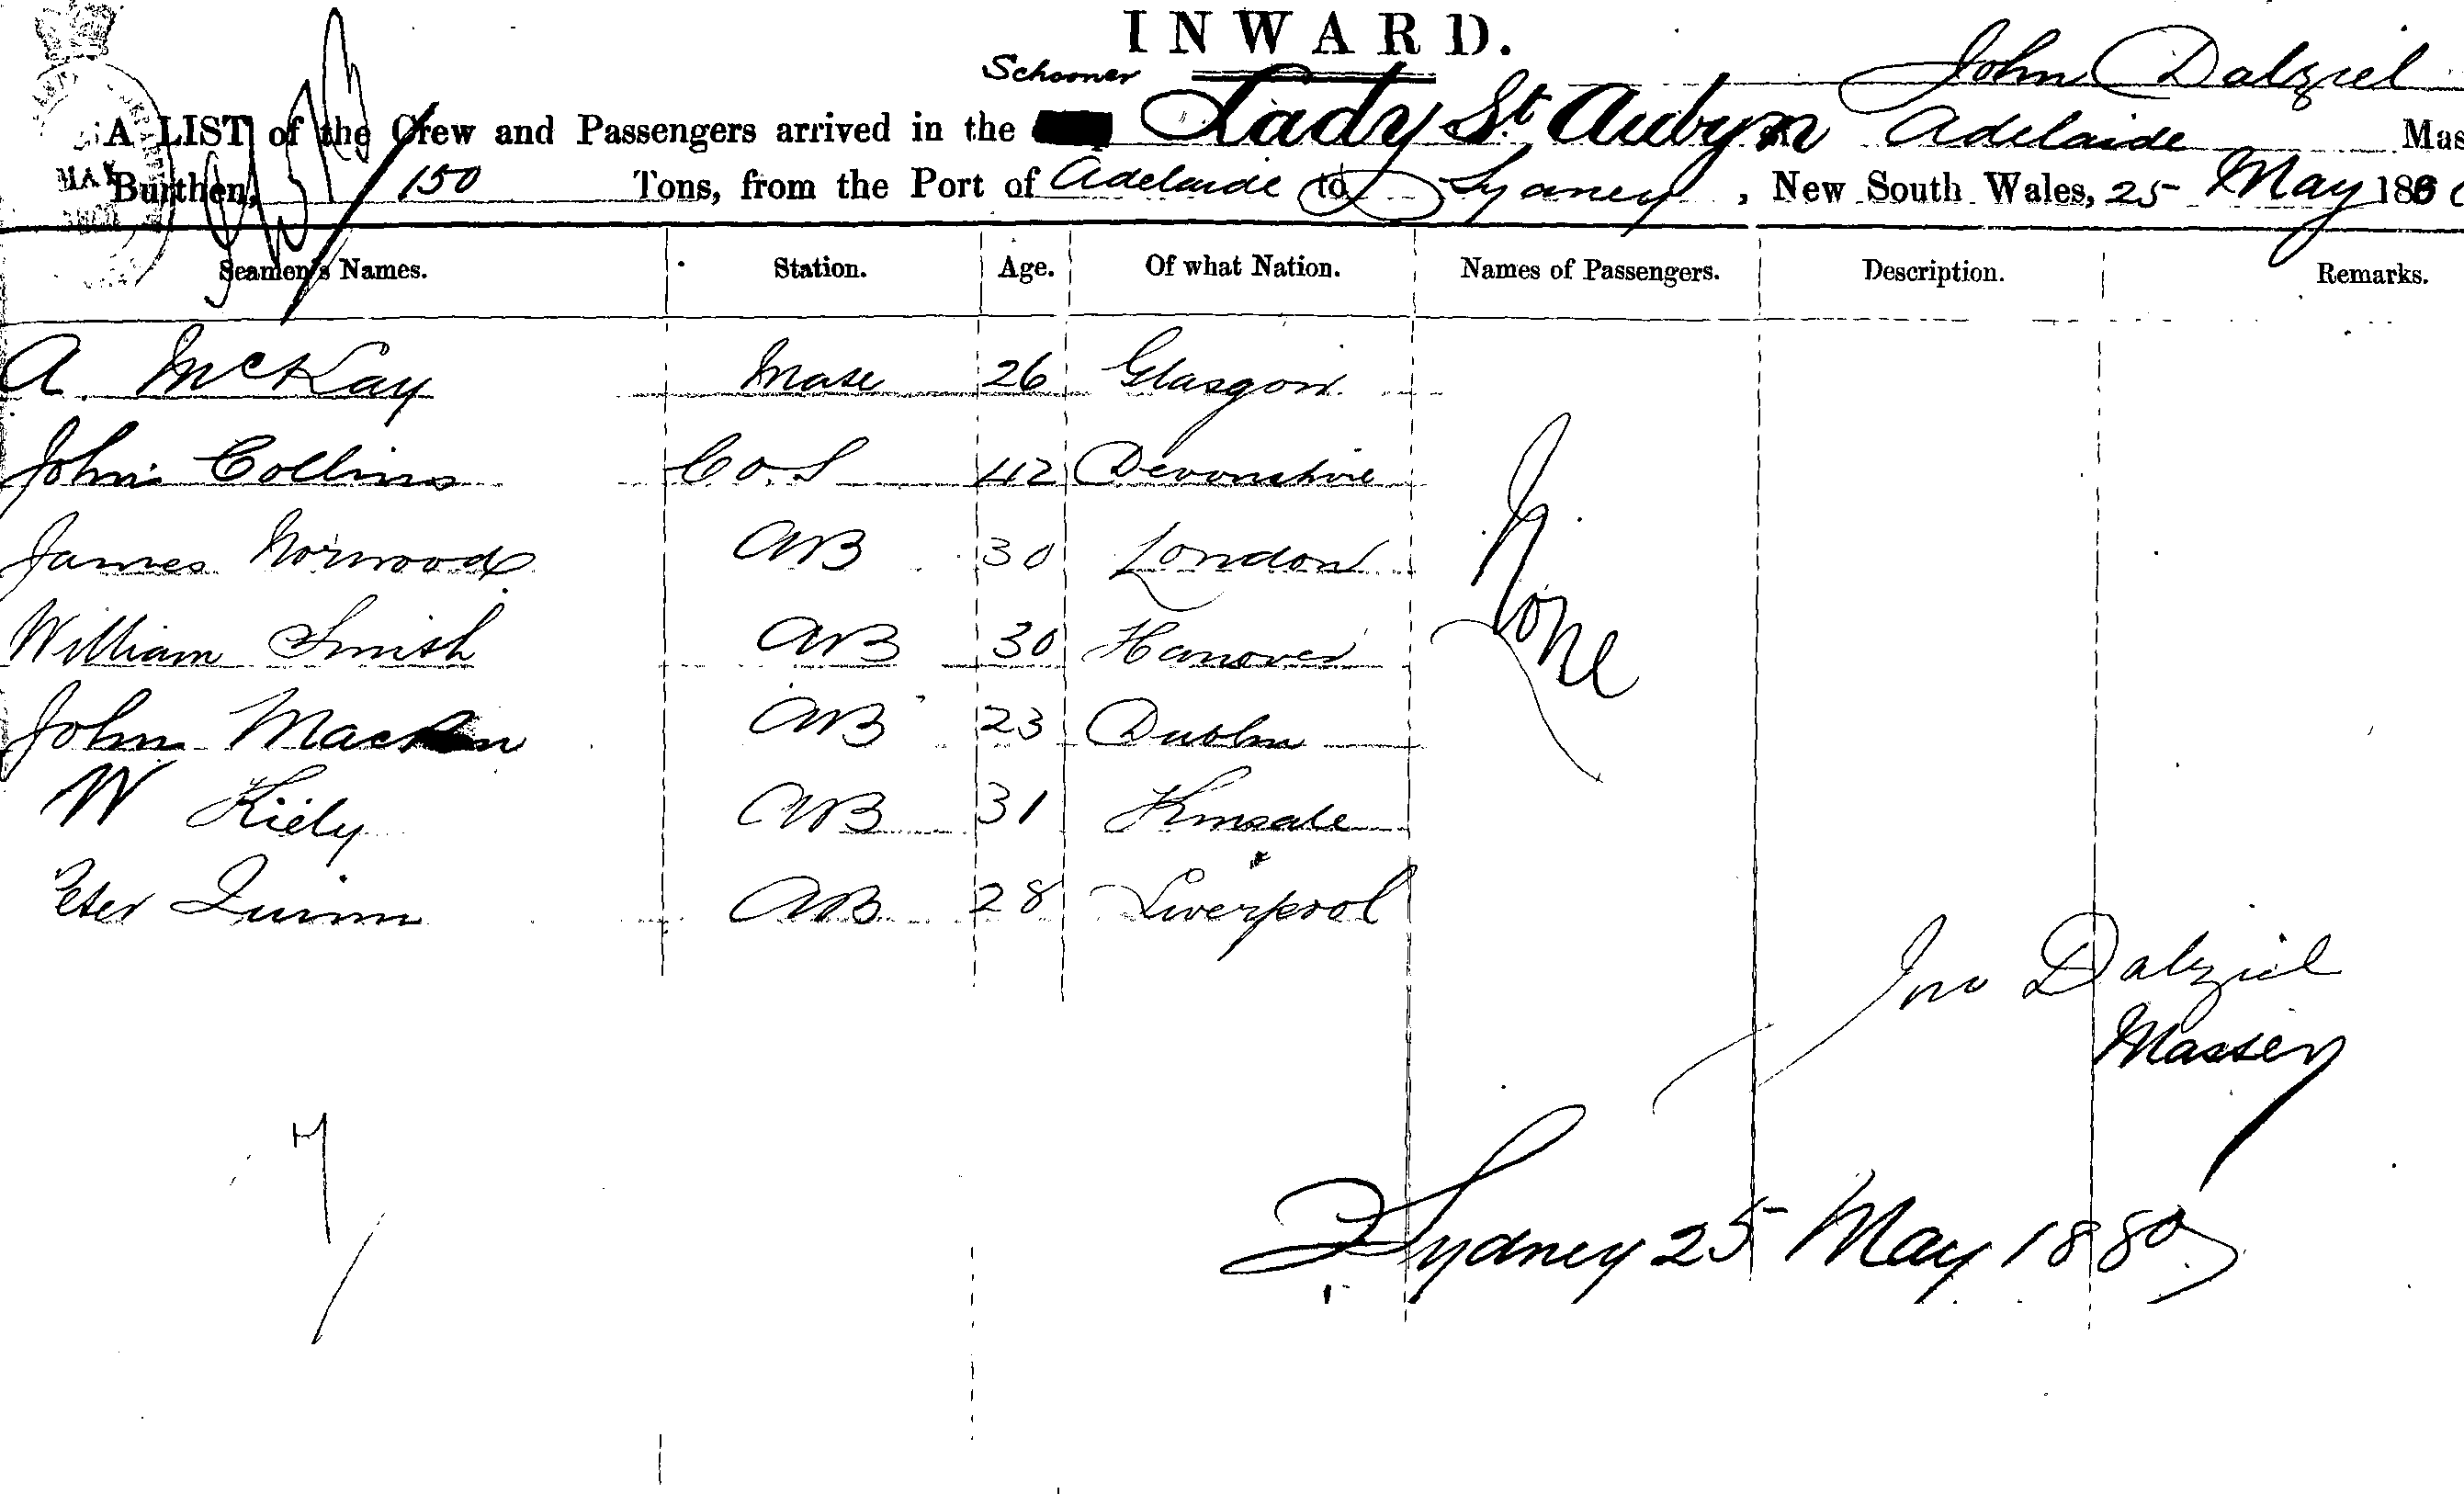 INWARD.
Schooner John Dalziel
A LIST of the Crew and Passengers arrived in the Lady St Aubyn Adelaide Mas
Burthen, 150 Tons, from the Port of Adelaide to Sydney, New South Wales, 25 May 1880
MAY
Seamen's Names. Station. Age. Of what Nation. Names of Passengers. Description. Remarks.
A. McKay Mate 26 Glasgow
John Collins Co. S 42 Devonshire
James Norwood AB 30 London
None
William Smith AB 30 Hanover
John Macken AB 23 Dublin
W Kiely AB 31 Kinsale
Peter Quinn AB 28 Liverpool
Jno Dalziel
Master
7
Sydney 25 May 1880